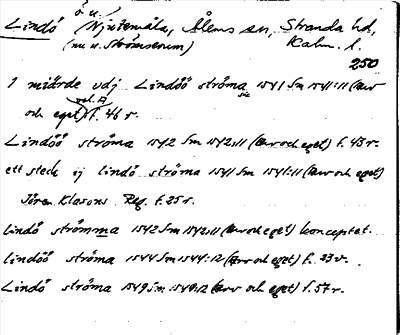 ö u.
Lindö (Njutemåla, Ålems sn, Stranda hd,
(nu u. Strömserum) Kalm. l.
250
1 miärde vdj Lindöö ströma 1541 Sm 1541:11 (Arv
och eget) f. 46 r.
Lindöö ströma 1542 Sm 1542:11 (Arv och eget) f. 43 r.
ett steck ij lindö ströma 1541 Sm 1541:11 (Arv och eget)
Jören Klasons Reg. f. 25 r.
Lindö strömma 1542 Sm 1542:11 (Arv och eget) konceptet.
lindöö ströma 1544 Sm 1544:12 (Arv och eget) f. 33 v.
Lindö ströma 1549 Sm 1549:12 (Arv och eget) f. 57 r.